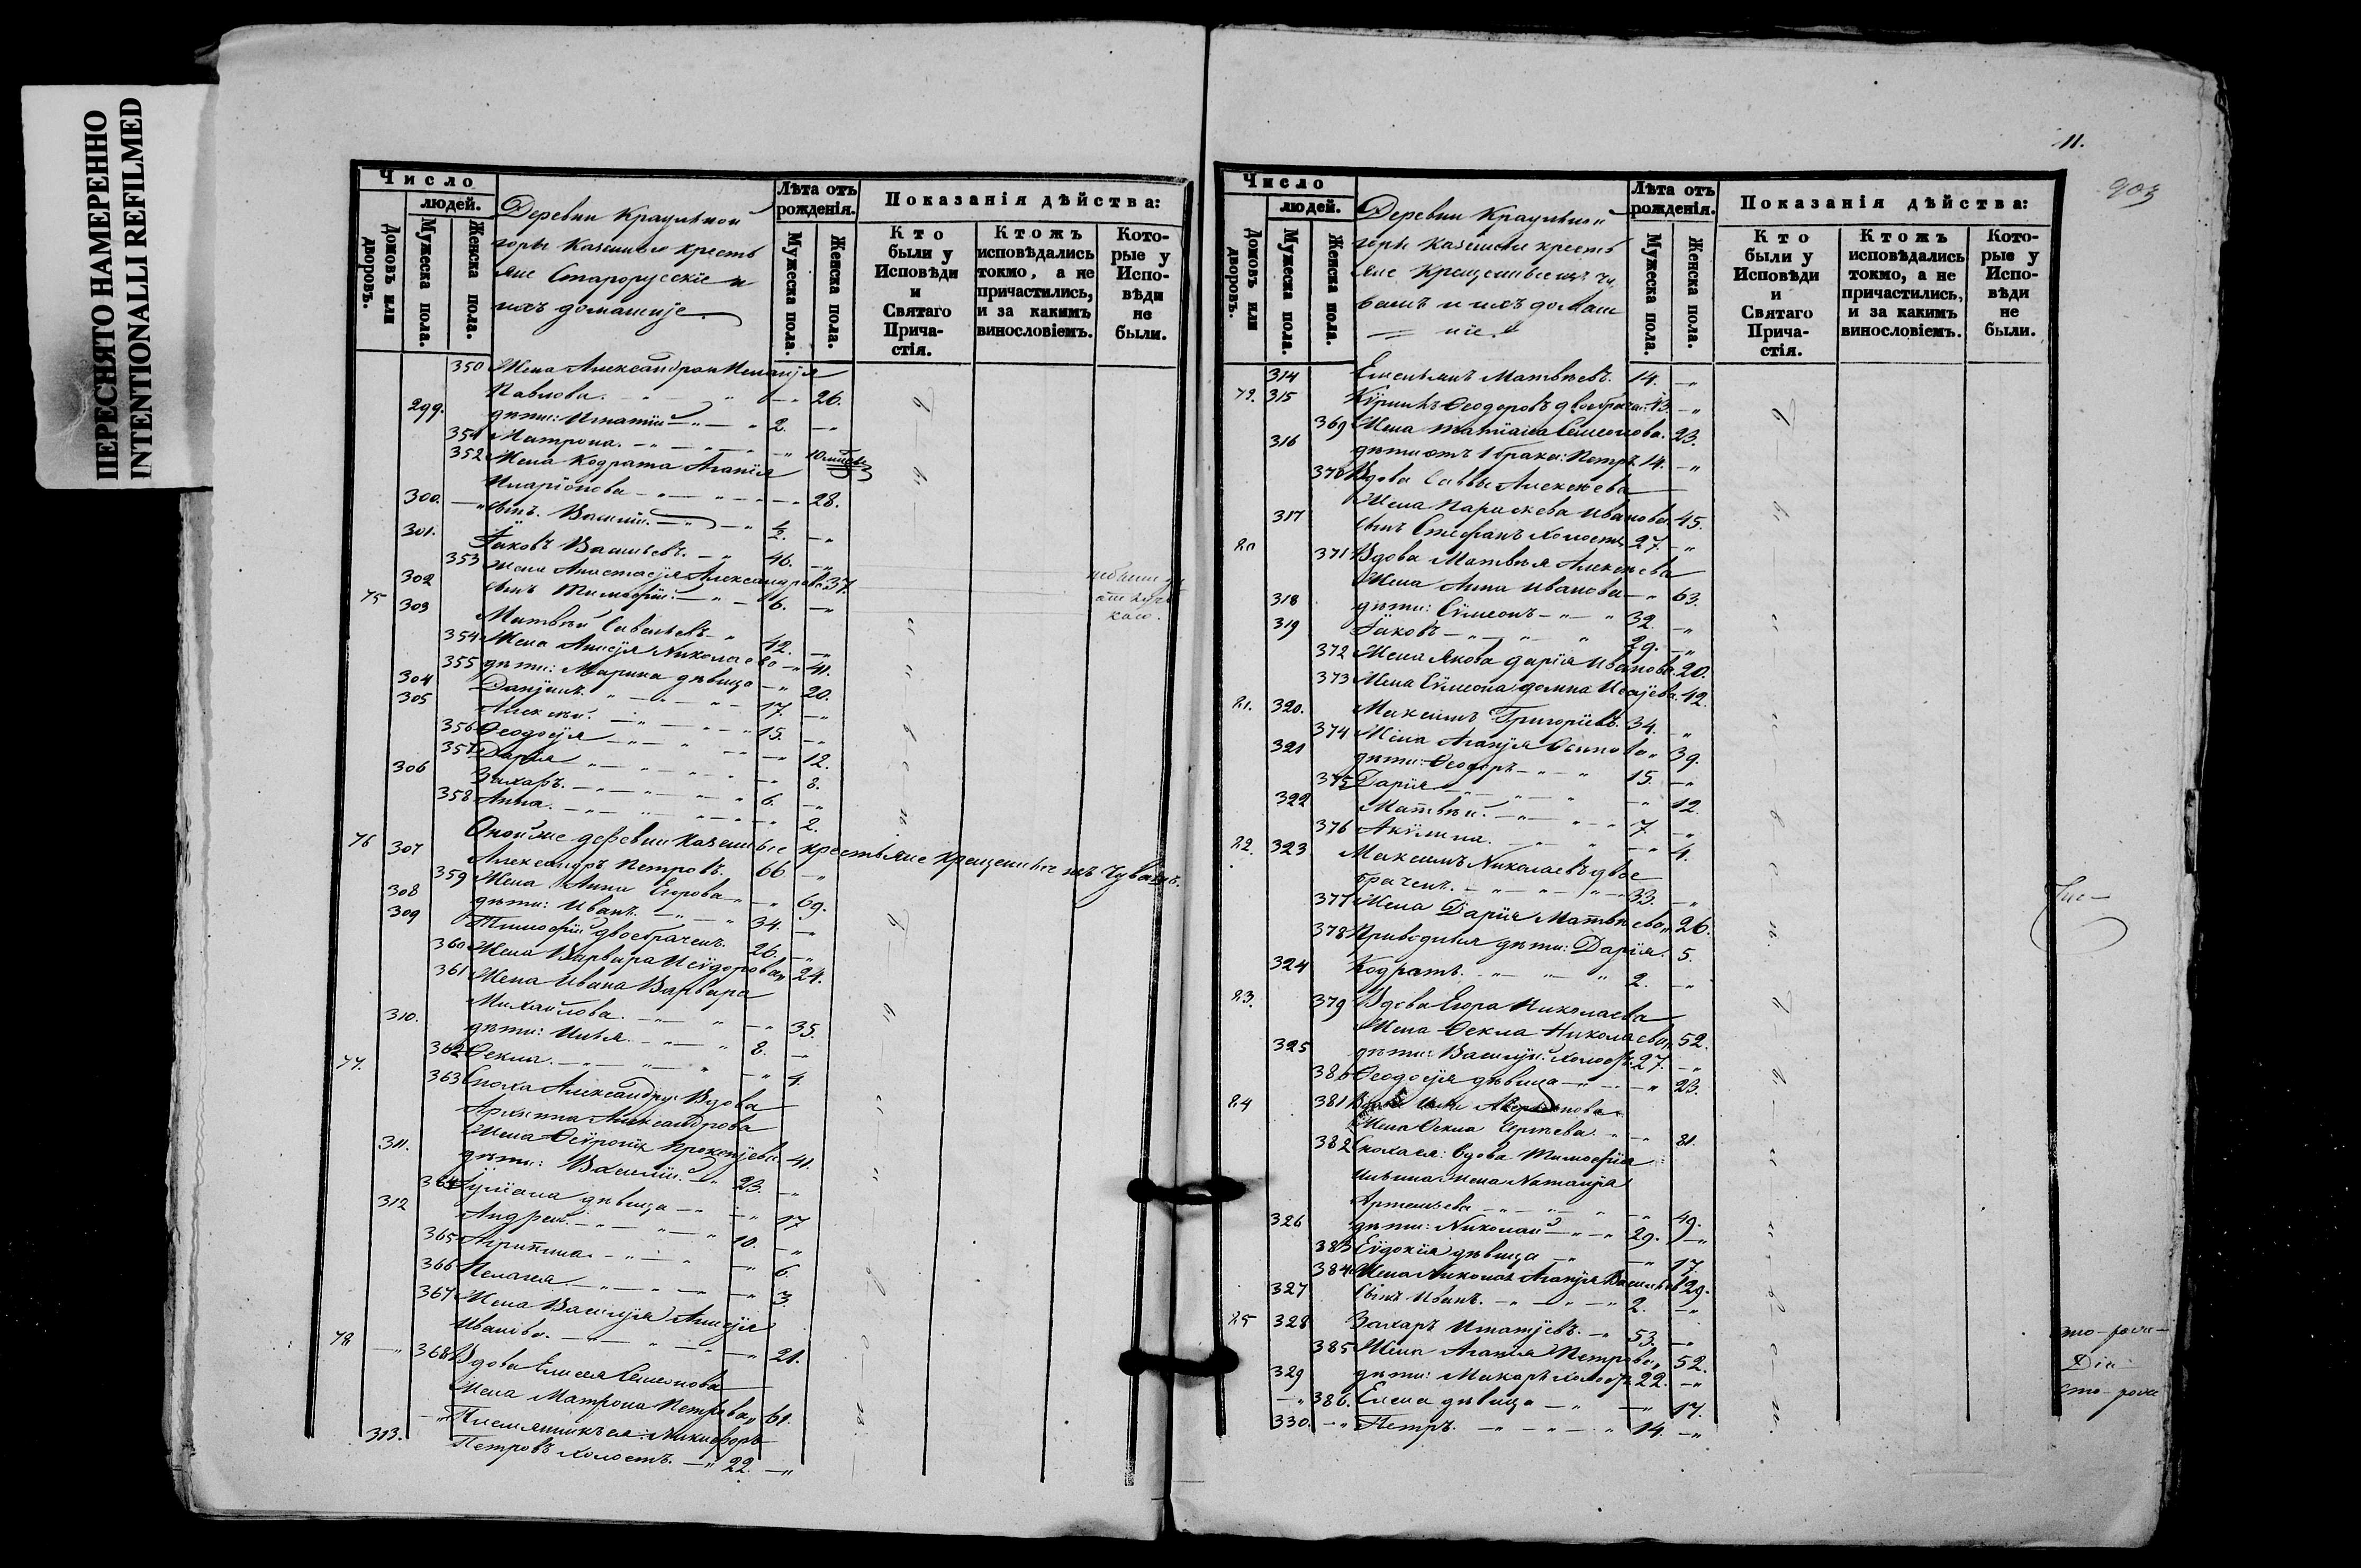 ПЕРЕСНЯТО НАМЕРЕННО
INTENTIONALLI REFILMED
Число
людей.
Домовъ или дворовъ.
Мужеска пола.
Женска пола.
Деревни Караульной
горы казенные кресть
яне Старорусскіе и
ихъ домашніе.
Лѣта отъ рожденія.
Мужеска пола.
Женска пола.
Показанія дѣйства:
Кто были у Исповѣди и Святаго Прича-стія.
Ктожъ исповѣдались токмо, а не причастились, и за какимъ винословіемъ.
Кото-рые у Испо-вѣди не были.
350 Жена Александра Меланія
Павлова. 26.
299. дѣти: Игнатій 2.
351 Матрона.
352 Жена Кодрата Агапія
Иларіонова 28.
300. сынъ Василій ½.
301. Іаковъ Васильевъ. 46.
353 жена Анастасія Александрова 37.
302 сынъ Тимофей 6.
75 303 Матвѣй Савельевъ 42.
354 Жена Анисія Николаева 41.
355 дѣти: Марина дѣвица 20.
304 Даніилъ 17.
305 Алексѣй. 15.
356 Феодосія 12.
357 Дарія 8.
306 Захаръ. 6.
358 Анна. 2.
Оной же деревни казенные крестьяне крещеные изъ Чувашъ.
76 307 Александръ Петровъ. 66
359 Жена Анна Егорова 69.
308 дѣти: Иванъ. 34.
309 Тимофей двоебраченъ. 26.
360 Жена Варвара Исидорова 24.
361 Жена Ивана Варвара
Михайлова. 35.
310. дѣти: Илья. 8.
362 Фекла. 4.
77. 363 Сноха Александру Вдова
Архиппа Александрова
Жена Прокопіева 41.
311. дѣти: Василій. 23.
364 Іуліана дѣвица 17
312 Андрей. 10.
365 Агрипина. 6.
366 Пелагея. 3.
367 Жена Василія Анисія
Иванова. 21.
78 368 Вдова Елисея Семенова
Жена Матрона Петрова 61.
Племянникъ ея: Никифоръ
313. Петровъ холостъ. 22.
11.
903
Число
людей.
Домовъ или дворовъ.
Мужеска пола.
Женска пола.
Деревни Караульной
горы казенные кресть
яне Крещеные изъ Чу
вашъ и ихъ домаш
ніе.
Лѣта отъ рожденія.
Мужеска пола.
Женска пола.
Показанія дѣйства:
Кто были у Исповѣди и Святаго Прича-стія.
Ктожъ исповѣдались токмо, а не причастились, и за какимъ винословіемъ.
Кото-рые у Испо-вѣди не были.
314 Емельянъ Матвѣевъ. 14.
79. 315 Кириллъ Феодоровъ двоебрачен. 43.
369 Жена татіана Семеонова. 23.
316 дѣти отъ 1 брака: Петръ 14.
370 Вдова Саввы Алексѣева
Жена Параскева Иванова 45.
317 сынъ Стефанъ холостъ 27.
80 371 Вдова Матвѣя Алексѣева
Жена Анна Иванова 63.
318 дѣти: Сімеонъ 32.
319 Іаковъ 29.
372 Жена Якова дарія Иванова. 20.
373 Жена Сімеона домна Исаіева. 42.
81. 320. Максимъ Григоріевъ. 34.
374 Жена Агапія Осипова 39.
321 дѣти: Феодоръ 15.
375 Дарія 12.
322 Матвѣй. 7.
376 Акилина. 4.
82. 323 Максимъ Николаевъ двое
браченъ. 33.
377 Жена Дарія Матвѣева 26.
378 Приводныя дѣти: Дарія. 5.
324 Кодратъ. 2.
83. 379 Вдова Егора Николаева
Жена Фекла Николаева 52.
325 дѣти: Василій холостъ. 27.
380 Феодосія дѣвица 23.
84 381 Вдова Ильи
Жена Фекла Сергѣева. 81.
382 Сноха ея: Вдова Тимофея
Ильина Жена Наталія
Артемьева 49.
326 дѣти: Николай 29.
383 Евдокія дѣвица 17.
384 Жена Николая Агапія Васильева 29.
327 Сынъ Иванъ. 2.
85 328 Захаръ Игнатіевъ. 53.
385 Жена Агапія Петрова 52.
329 дѣти: Макаръ холостъ 22.
386. Елена дѣвица 17.
330. Петръ. 14.